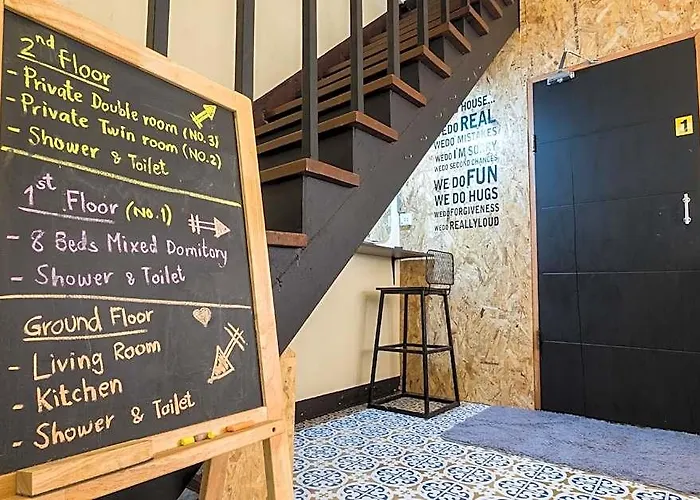 2nd Floor
- Private Double room (NO.3)
- Private Twin room (NO.2)
- Shower & Toilet
1st Floor (NO.1)
- 8 Beds Mixed Domitory
- Shower & Toilet
Ground Floor
- Living Room
- Kitchen
- Shower & Toilet
HOUSE...
WE DO REAL
WE DO MISTAKES
WE DO I'M SORRY
WE DO SECOND CHANCES
WE DO FUN
WE DO HUGS
WE DO FORGIVENESS
WE DO REALLY LOUD
1